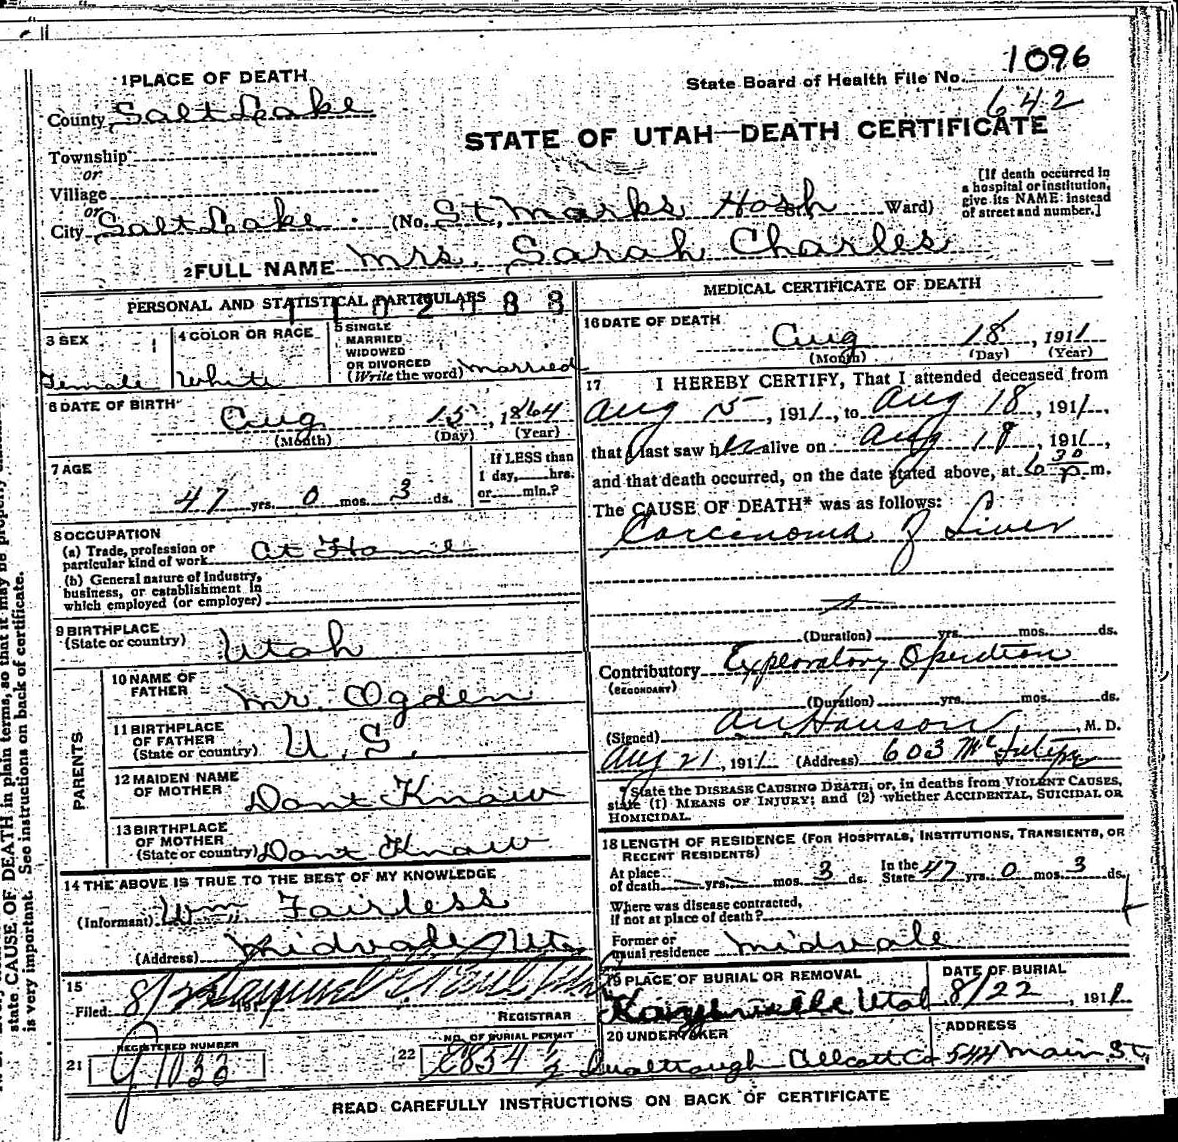 1 PLACE OF DEATH
State Board of Health File No. 1096
642
County Salt Lake
STATE OF UTAH—DEATH CERTIFICATE
Township
or
Village
or
City Salt Lake (No. St. Marks Hosp Ward)
[If death occurred in a hospital or institution, give its NAME instead of street and number.]
2 FULL NAME Mrs. Sarah Charles
PERSONAL AND STATISTICAL PARTICULARS
3 SEX Female
4 COLOR OR RACE White
5 SINGLE MARRIED WIDOWED OR DIVORCED (Write the word) Married
6 DATE OF BIRTH Aug 15, 1864
(Month) (Day) (Year)
7 AGE 47 yrs. 0 mos. 3 ds.
If LESS than 1 day, hrs. or min.?
8 OCCUPATION
(a) Trade, profession or particular kind of work At Home
(b) General nature of Industry, business, or establishment in which employed (or employer)
9 BIRTHPLACE (State or country) Utah
PARENTS
10 NAME OF FATHER Mr. Ogden
11 BIRTHPLACE OF FATHER (State or country) U. S.
12 MAIDEN NAME OF MOTHER Dont Know
13 BIRTHPLACE OF MOTHER (State or country) Dont Know
14 THE ABOVE IS TRUE TO THE BEST OF MY KNOWLEDGE
(Informant) Wm. Fairless
(Address) Midvale Utah
15
Filed: 191
REGISTRAR
21 REGISTERED NUMBER 1033
22 NO. OF BURIAL PERMIT
MEDICAL CERTIFICATE OF DEATH
16 DATE OF DEATH
Aug 18, 1911
(Month) (Day) (Year)
17 I HEREBY CERTIFY, That I attended deceased from
Aug 15, 1911, to Aug 18, 1911,
that I last saw her alive on Aug 18, 1911,
and that death occurred, on the date stated above, at 6 30 p.m.
The CAUSE OF DEATH* was as follows:
Carcinoma of Liver
(Duration) yrs. mos. ds.
Contributory Exploratory Operation
(SECONDARY)
(Duration) yrs. mos. ds.
(Signed) Hanson, M. D.
Aug 21, 1911 (Address) 603 McIntyre
*State the DISEASE CAUSING DEATH; or, in deaths from VIOLENT CAUSES, state (1) MEANS OF INJURY; and (2) whether ACCIDENTAL, SUICIDAL OR HOMICIDAL.
18 LENGTH OF RESIDENCE (FOR HOSPITALS, INSTITUTIONS, TRANSIENTS, OR RECENT RESIDENTS)
At place of death yrs. mos. 3 ds. In the State 47 yrs. 0 mos. 3 ds.
Where was disease contracted, if not at place of death?
Former or usual residence Midvale
19 PLACE OF BURIAL OR REMOVAL Kaysville Utah
DATE OF BURIAL 8/22, 1911
20 UNDERTAKER
ADDRESS 544 Main St.
READ CAREFULLY INSTRUCTIONS ON BACK OF CERTIFICATE
state CAUSE OF DEATH in plain terms, so that it may be properly
is very important. See instructions on back of certificate.